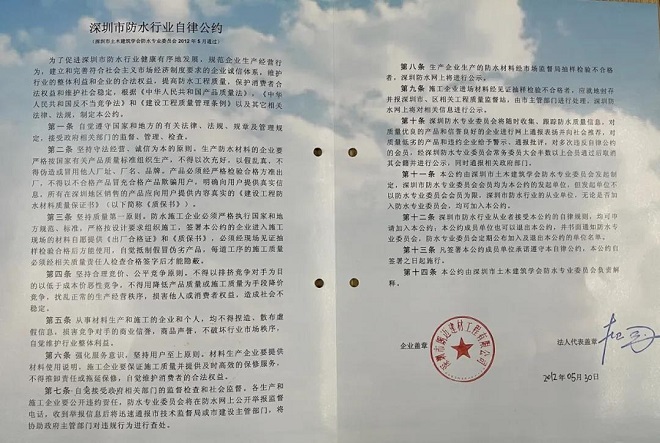 深圳市防水行业自律公约
（深圳市土木建筑学会防水专业委员会 2012 年 6 月通过）
为了促进深圳市防水行业健康有序地发展，规范企业生产经营行
为，建立和完善符合社会主义市场经济制度要求的企业诚信体系，维护
行业的整体利益和企业的合法权益，提高防水工程质量，保护消费者合
法权益和维护社会稳定，根据《中华人民共和国产品质量法》、《中华
人民共和国反不当竞争法》和《建设工程质量管理条例》以及其它相关
法律、法规，制定本公约。
第一条 自觉遵守国家和地方的有关法律、法规、规章及管理规
定，接受政府相关部门的监督、管理、检查。
第二条 坚持守法经营、诚信为本的原则。生产防水材料的企业要
严格按国家有关产品质量标准组织生产，不得以次充好，以假乱真，不
得伪造或冒用他人厂址、厂名、品牌。产品必须经严格检验合格方准出
厂，不得以不合格产品冒充合格产品欺骗用户，明确向用户提供真实信
息。所有在深圳地区销售的产品应向用户提供内容真实的《建设工程防
水材料质量保证书》（以下简称《质保书》）。
第三条 坚持质量第一原则。防水施工企业必须严格执行国家和地
方规范、标准，严格按设计要求组织施工，签署本公约的企业进入施工
现场的材料自愿提供《出厂合格证》和《质保书》，必须经现场见证抽
样检验合格后方能使用，自觉抵制假冒伪劣产品，每道工序的施工质量
必须经相关质量责任人检查合格签字后才能隐蔽。
第四条 坚持合理竞价、公平竞争原则。不得以排挤竞争对手为目
的以低于成本价恶性竞争，不得用降低产品质量或施工质量为手段降价
竞争，扰乱正常的生产经营秩序，损害他人或消费者权益，造成社会不
稳定。
第五条 从事材料生产和施工的企业和个人，均不得捏造、散布虚
假信息，损害竞争对手的商业信誉、商品声誉，不破坏行业市场秩序，
自觉维护行业整体利益。
第六条 强化服务意识，坚持用户至上原则，材料生产企业要提供
材料使用说明，施工企业要保证施工质量并提供及时高效的保修服务，
不得推卸责任或拖延保修，自觉维护消费者的合法权益。
第七条 自觉接受政府相关部门的监督检查和社会监督，各生产和
施工企业要公开违约责任，防水专业委员会将在防水网上公开举报监督
电话，收到举报信息后将迅速通报市技术监督局或市建设主管部门，将
协助政府主管部门对违规行为进行查处。
第八条 生产企业生产的防水材料经市场监督局抽样检验不合格
者，深圳防水网上将进行公示。
第九条 施工企业进场材料经见证抽样检验不合格者，应就地封存
并报深圳市、区相关工程质量监督站，由市主管部门进行处理，深圳防
水网上将对相关信息进行公示。
第十条 深圳市防水专业委员会将随时收集、跟踪防水质量信息，对
质量优良的产品和信誉良好的企业进行网上通报表扬并向社会推荐，对
质量低劣的产品和违约企业给予警示、通报批评，对多次违反自律公约
的会员，经深圳市防水专业委员会常务委员大会半数以上会员通过后取消
其会籍并进行公示，同时通报相关政府部门。
第十一条 本公约由深圳市土木建筑学会防水专业委员会发起制
定，深圳市防水专业委员会会员均为本公约的发起单位，但发起单位不
以防水专业委员会会员为限，深圳市防水行业的从业单位，无论是否加
入防水专业委员会，均可加入本公约。
第十二条 深圳市防水行业从业者接受本公约的自律规则，均可申
请加入本公约，本公约成员单位也可以退出本公约，并书面通知防水专
业委员会，防水专业委员会定期公布加入及退出本公约的单位名单。
第十三条 凡签署本公约成员单位承诺遵守本自律公约，本公约自
签署之日起施行。
第十四条 本公约由深圳市土木建筑学会防水专业委员会负责解
释。
企业盖章
法人代表盖章
2012 年 05 月 30 日